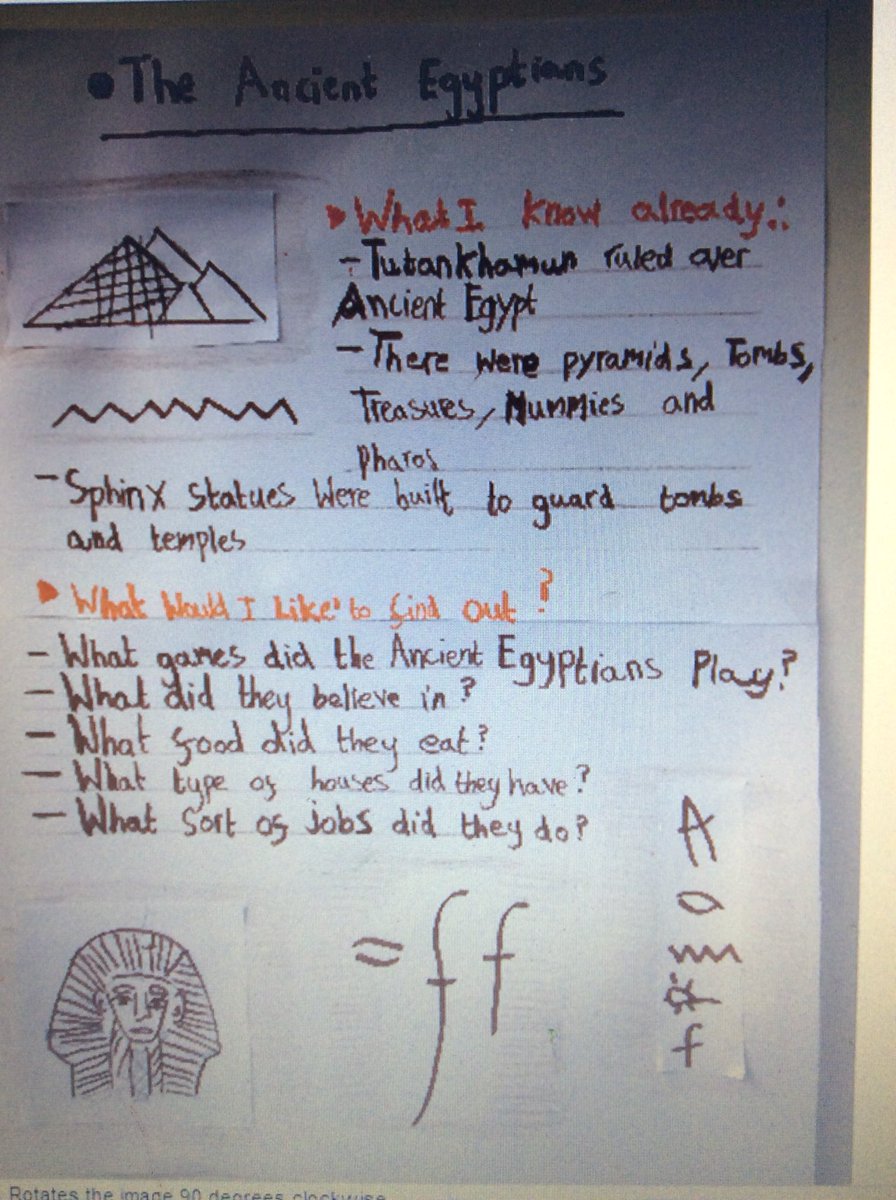 • The Ancient Egyptians
What I know already:
- Tutankhamun ruled over
Ancient Egypt
- There were pyramids, Tombs,
Treasures, Mummies and
Pharos
- Sphinx statues were built to guard tombs
and temples
What Would I Like to find out ?
- What games did the Ancient Egyptians Play?
- What did they believe in ?
- What food did they eat?
- What type of houses did they have?
- What sort of jobs did they do?
= f f
A
f
Rotates the image 90 degrees clockwise